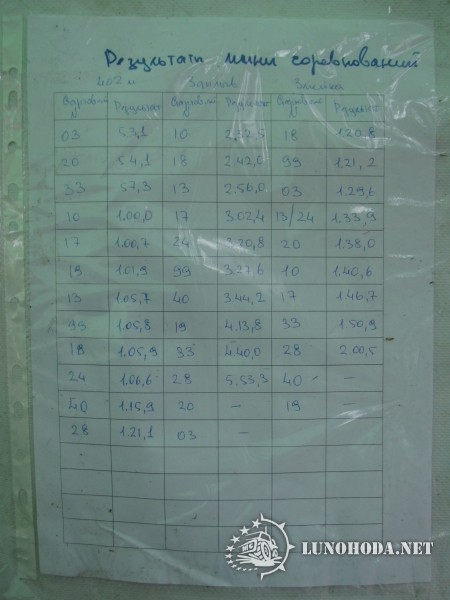 Результати мини соревнований
402 м Змейка
Стартовый Результат Результат
03 53,1 10 2.22,5 18 1.20,8
20 54,1 18 2.42,0 99 1.21,2
33 57,3 13 2.56,0 03 1.29,6
10 1.00,0 17 3.02,4 13/24 1.33,9
17 1.00,7 24 20,8 20 1.38,0
19 1.01,9 99 3.27,6 10 1.40,6
13 1.05,7 40 3.44,2 17 1.46,7
99 1.05,8 19 4.13,8 33 1.50,9
18 1.05,9 33 4.40,0 28 2.00,5
24 1.06,6 28 5.53,3 40 –
40 1.15,9 20 – 19 –
28 1.21,1 03 –
LUNOHODA.NET